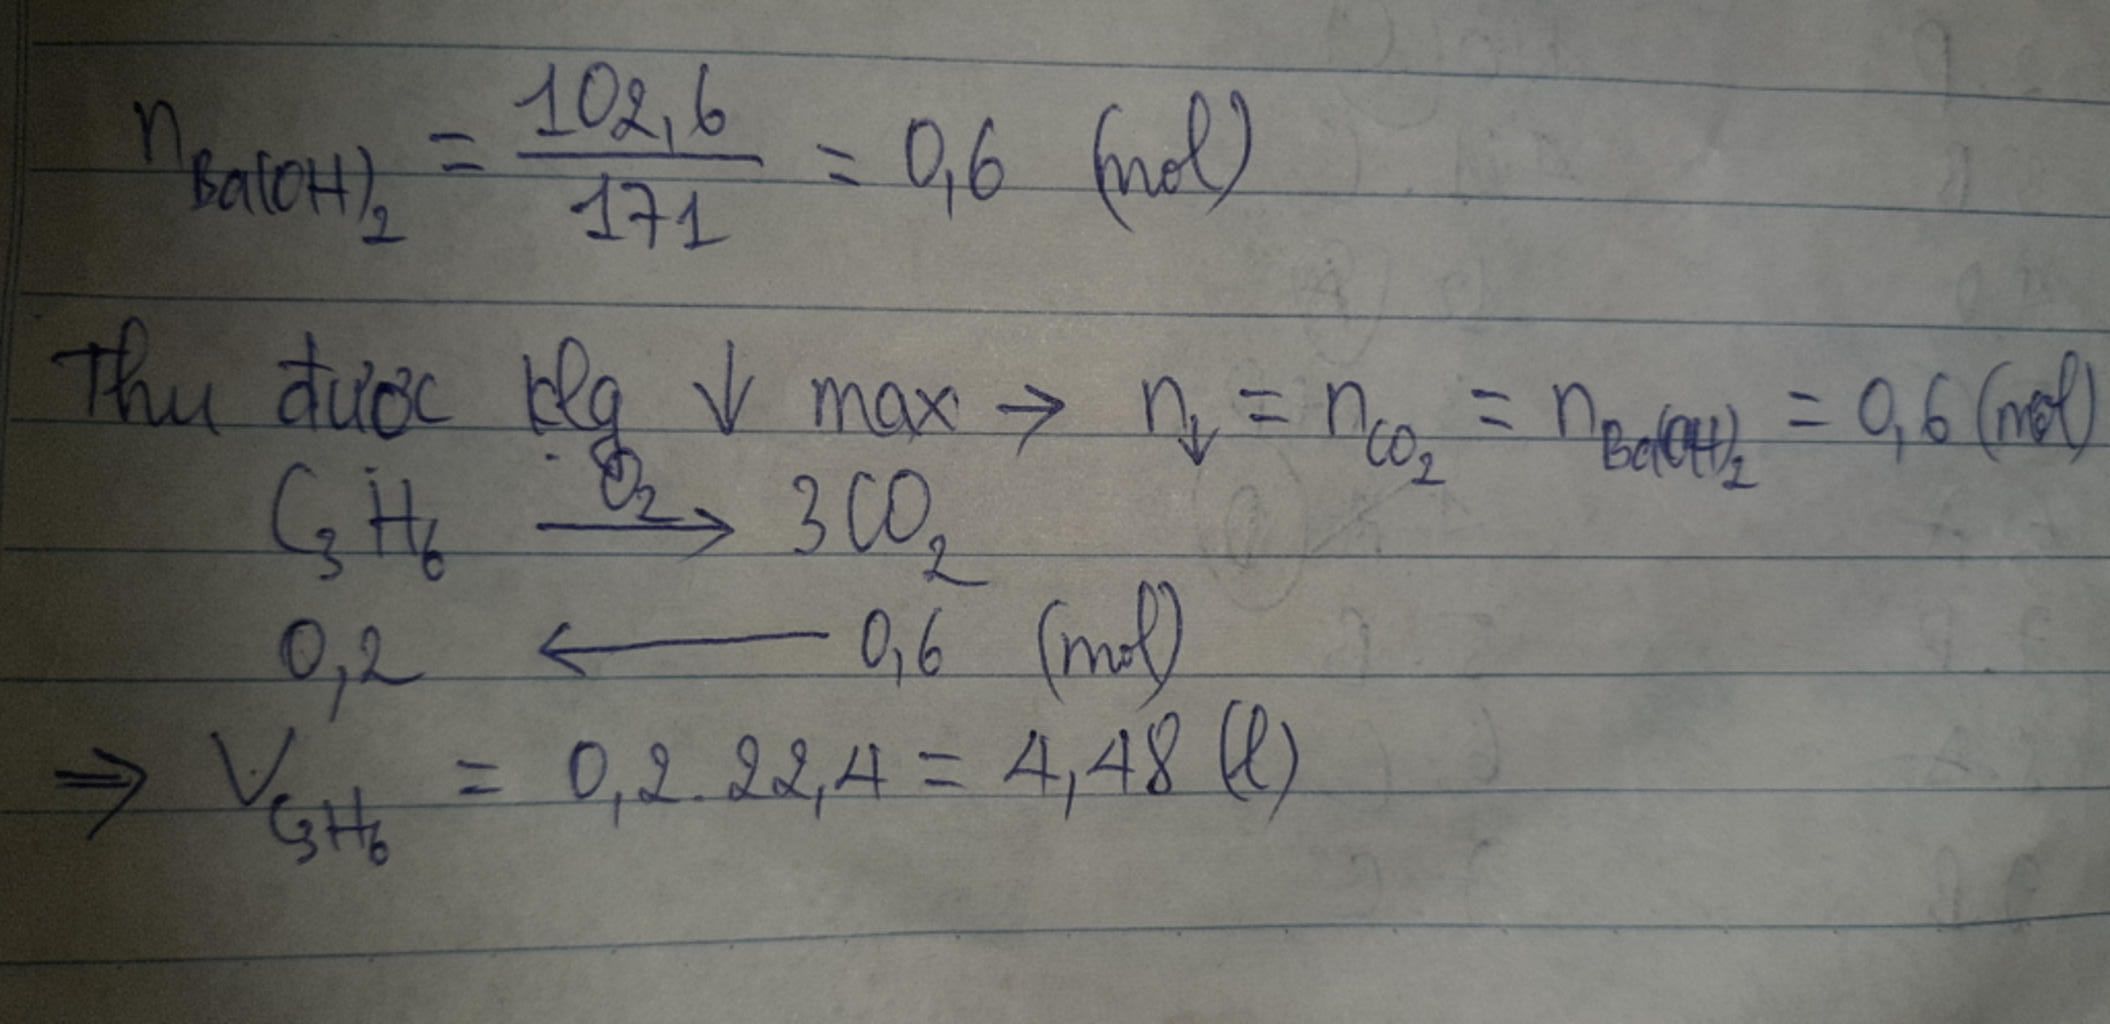 n Ba(OH)₂ = 102,6 / 171 = 0,6 (mol)
Thu được klg ↓ max → n↓ = n CO₂ = n Ba(OH)₂ = 0,6 (mol)
C₃H₆ —O₂→ 3CO₂
0,2 ← 0,6 (mol)
⇒ V C₃H₆ = 0,2 . 22,4 = 4,48 (l)